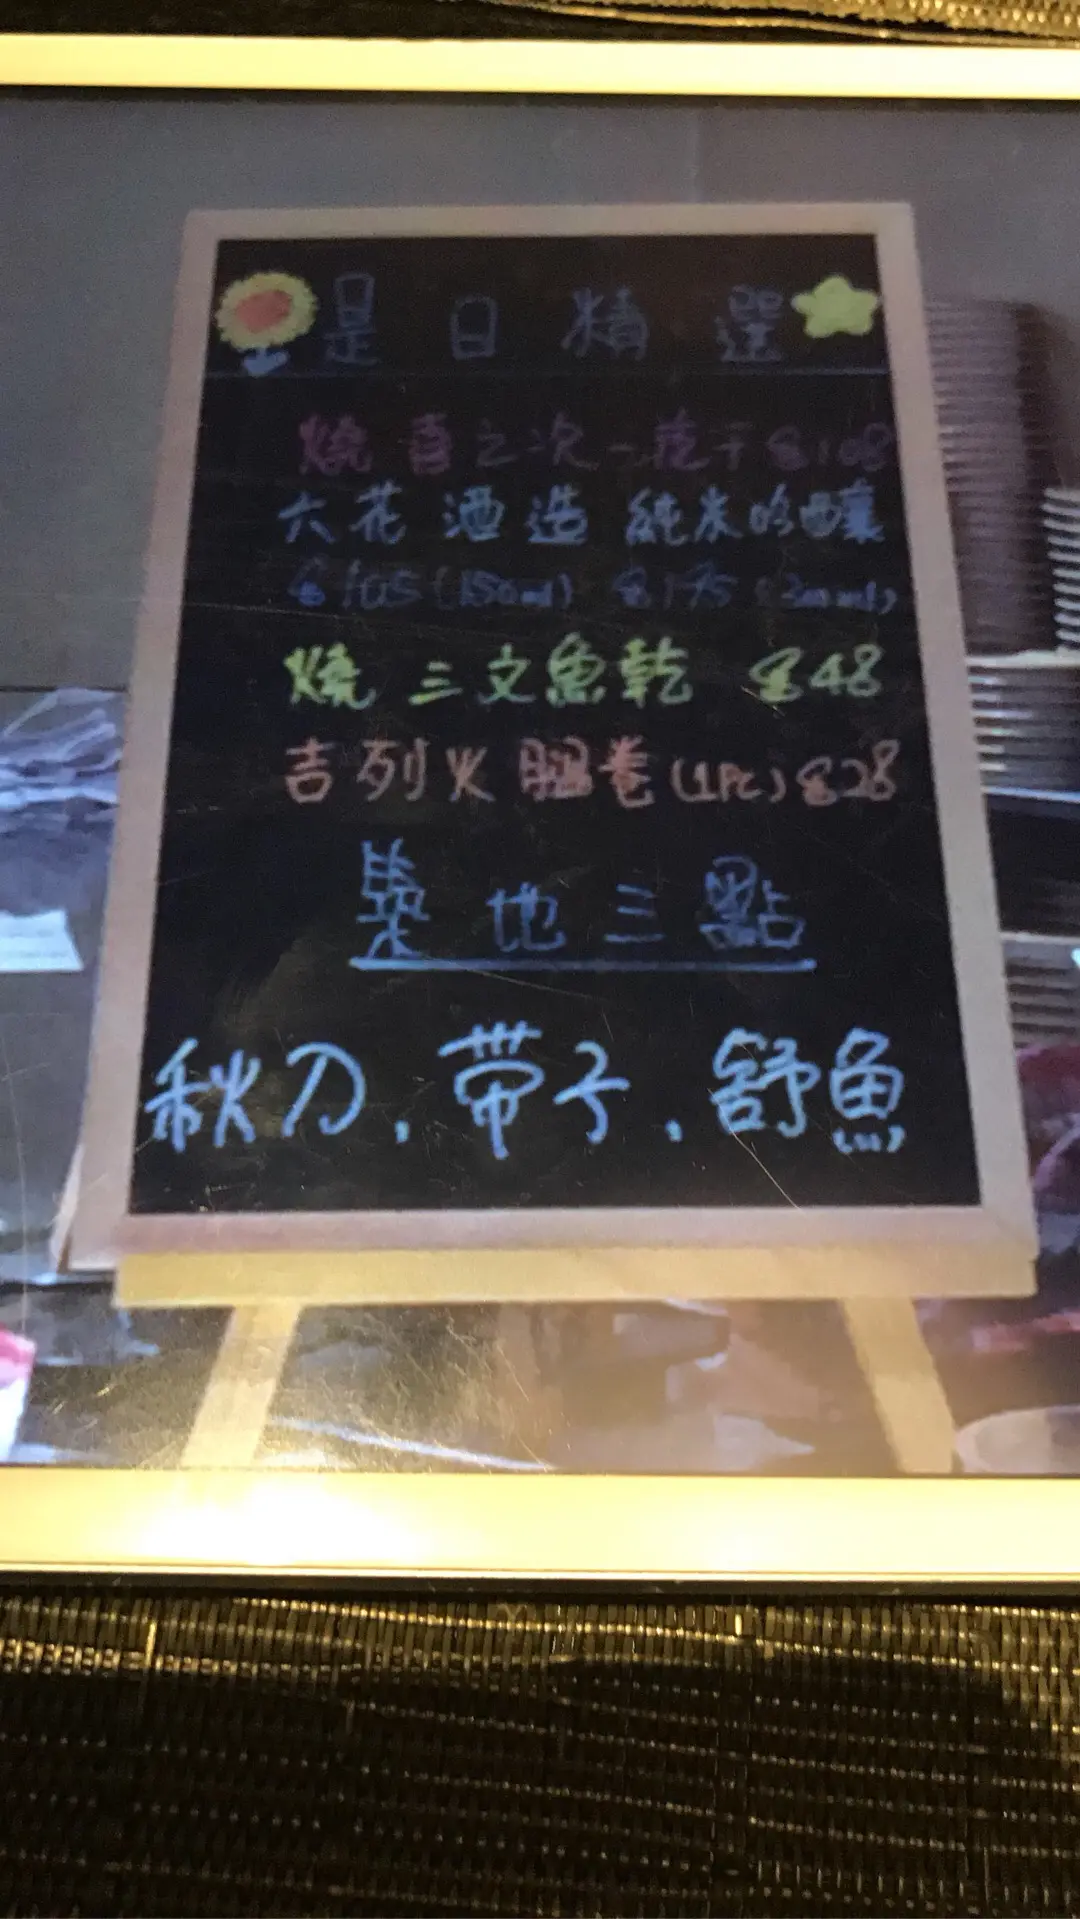 是日精選
燒喜之次一夜干 $108
六花酒造 純米吟釀
$105 (150ml) $175 (300ml)
燒三文魚乾 $48
吉列火腿卷 (1PC) $28
築地三點
秋刀, 帶子, 舒魚